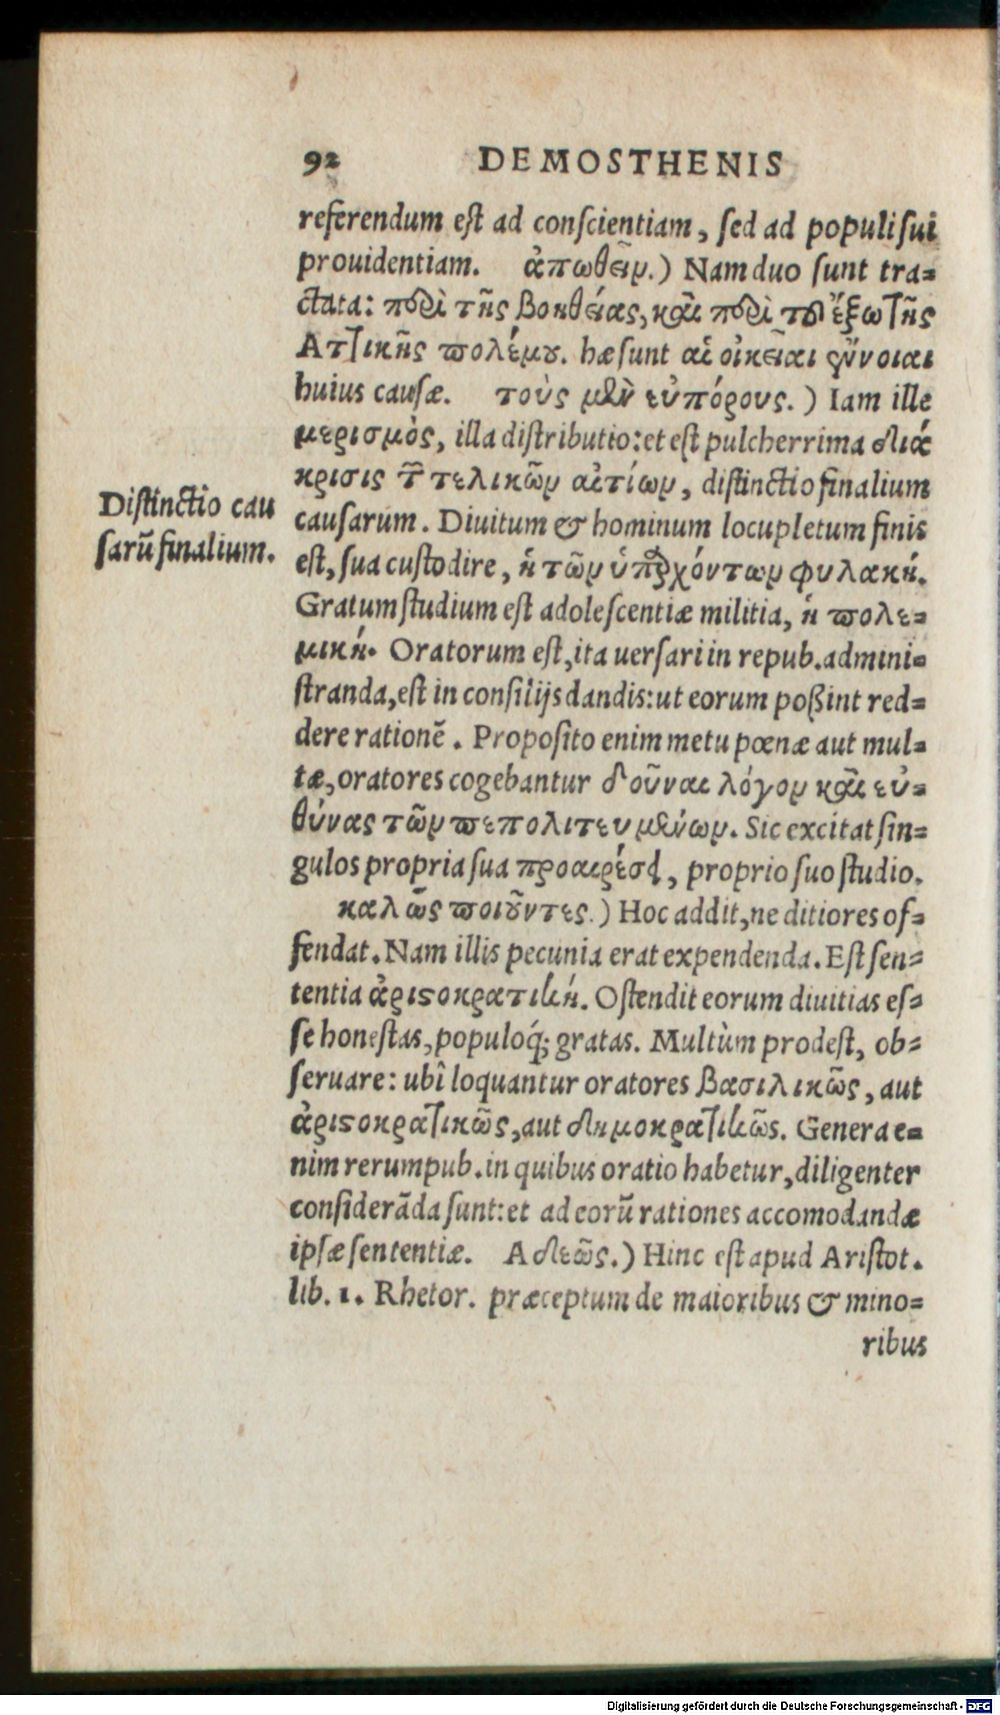 92 DEMOSTHENIS
referendum est ad conscientiam, sed ad populi sui
prouidentiam. ἀπωθεῖν.) Nam duo sunt tra=
ctata: περὶ τῆς βοηθείας, καὶ περὶ τοῦ ἔξω τῆς
Ἀττικῆς πολέμου. hæ sunt αἱ οἰκεῖαι ἔννοιαι
huius causæ. τοὺς μὲν εὐπόρους.) Iam ille
μερισμὸς, illa distributio: et est pulcherrima διά
κρισις τῶν τελικῶν αἰτίων, distinctio finalium
Distinctio cau
sarũ finalium.
causarum. Diuitum & hominum locupletum finis
est, sua custodire, ἡ τῶν ὑπαρχόντων φυλακή.
Gratum studium est adolescentiæ militia, ἡ πολε=
μική. Oratorum est, ita uersari in repub. admini=
stranda, est in consilijs dandis: ut eorum poßint red=
dere rationẽ. Proposito enim metu pœnæ aut mul=
tæ, oratores cogebantur δοῦναι λόγον καὶ εὐ=
θύνας τῶν πεπολιτευμένων. Sic excitat sin=
gulos propria sua προαιρέσει, proprio suo studio.
καλῶς ποιοῦντες.) Hoc addit, ne ditiores of=
fendat. Nam illis pecunia erat expendenda. Est sen=
tentia ἀριστοκρατική. Ostendit eorum diuitias es=
se honestas, populoq́; gratas. Multùm prodest, ob=
seruare: ubî loquantur oratores βασιλικῶς, aut
ἀριστοκρατικῶς, aut δημοκρατικῶς. Genera e=
nim rerumpub. in quibus oratio habetur, diligenter
considerãda sunt: et ad eorũ rationes accomodandæ
ipsæ sententiæ. Ἀδεῶς.) Hinc est apud Aristot.
lib. 1. Rhetor. præceptum de maioribus & mino=
ribus
Digitalisierung gefördert durch die Deutsche Forschungsgemeinschaft - DFG